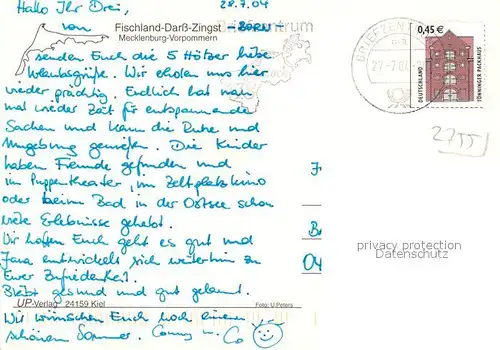 Hallo Ihr Drei, 28.7.04
Fischland-Darß-Zingst
Mecklenburg-Vorpommern
von - BORN -
senden Euch die 5 Hötser liebe
Urlaubsgrüße. Wir erholen uns hier
wieder prächtig. Endlich hat man
mal wieder Zeit für entspannende
Sachen und kann die Ruhe und
Umgebung genießen. Die Kinder
haben Freunde gefunden und
im Puppentheater, im Zeltplatzkino
oder beim Bad in der Ostsee schon
viele Erlebnisse gehabt.
Wir hoffen Euch geht es gut und
Jana entwickelt sich weiterhin zu
Eurer Zufriedenheit.
Bleibt gesund und gut gelaunt.
UP-Verlag 24159 Kiel Foto: U.Peters
Wir wünschen Euch noch einen
schönen Sommer. Conny u. Co
BRIEFZENTRUM
27-7.04
0,45 €
DEUTSCHLAND
TÖNNINGER PACKHAUS
2755
04
privacy protection
Datenschutz